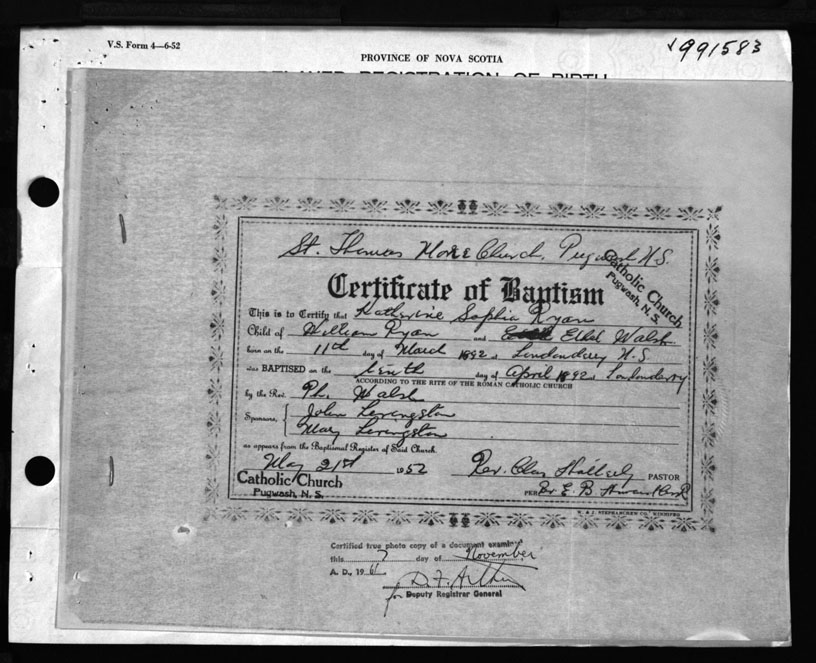 V.S. Form 4—6-52
991583
PROVINCE OF NOVA SCOTIA
DELAYED REGISTRATION OF BIRTH
St. Thomas More Church, Pugwash N.S.
Catholic Church
Pugwash, N. S.
Certificate of Baptism
This is to Certify that Katherine Sophie Ryan
Child of William Ryan and Ethel Walsh
born on the 11th day of March 1892 at Londonderry N.S
was BAPTISED on the tenth day of April 1892 at Londonderry
ACCORDING TO THE RITE OF THE ROMAN CATHOLIC CHURCH
by the Rev. Ph. Walsh
Sponsors, John Levingston
Mary Levingston
as appears from the Baptismal Register of Said Church.
May 21st 1952 Rev. PASTOR
Catholic Church
Pugwash, N. S.
PER E. B.
W. & J. STEPHANCHEW CO. WINNIPEG
Certified true photo copy of a document examined
this 7 day of November
A. D., 1961
for Deputy Registrar General